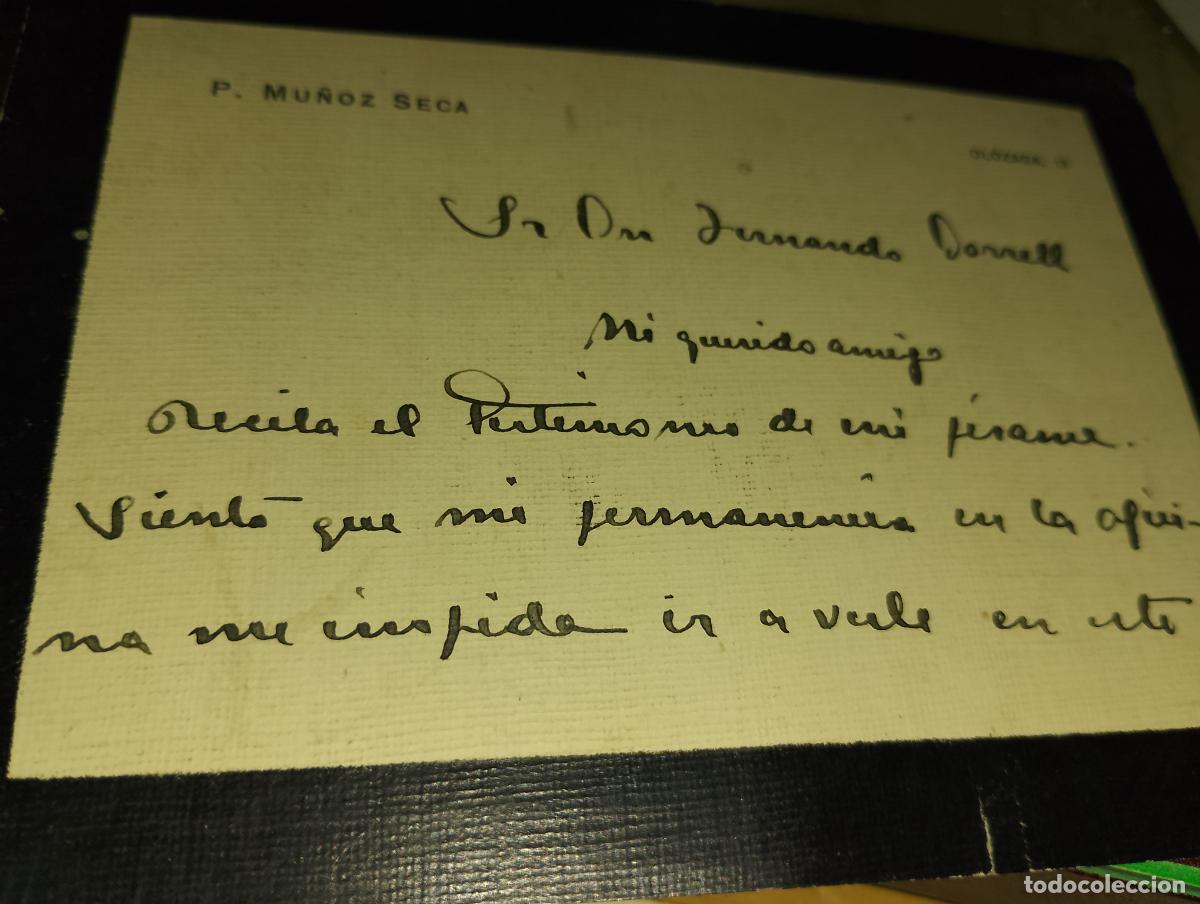 P. MUÑOZ SECA
OLÓZAGA,
Sr Dn Fernando Dorrell
Mi querido amigo
Reciba el testimonio de mi pésame.
Siento que mi permanencia en la ofici-
na me impida ir a verle en este
todocoleccion